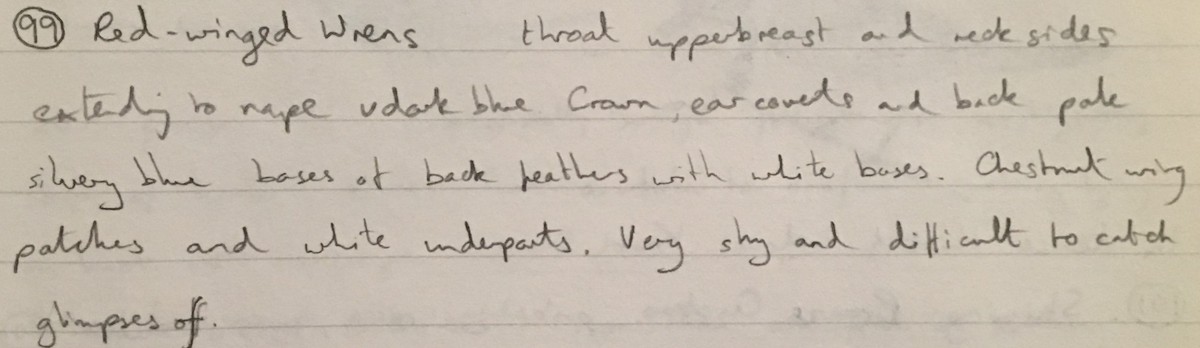 (99) Red-winged Wrens throat upperbreast and neck sides
extending to nape v dark blue Crown, ear coverts and back pale
silvery blue bases of back feathers with white bases. Chestnut wing
patches and white underparts. Very shy and difficult to catch
glimpses off.